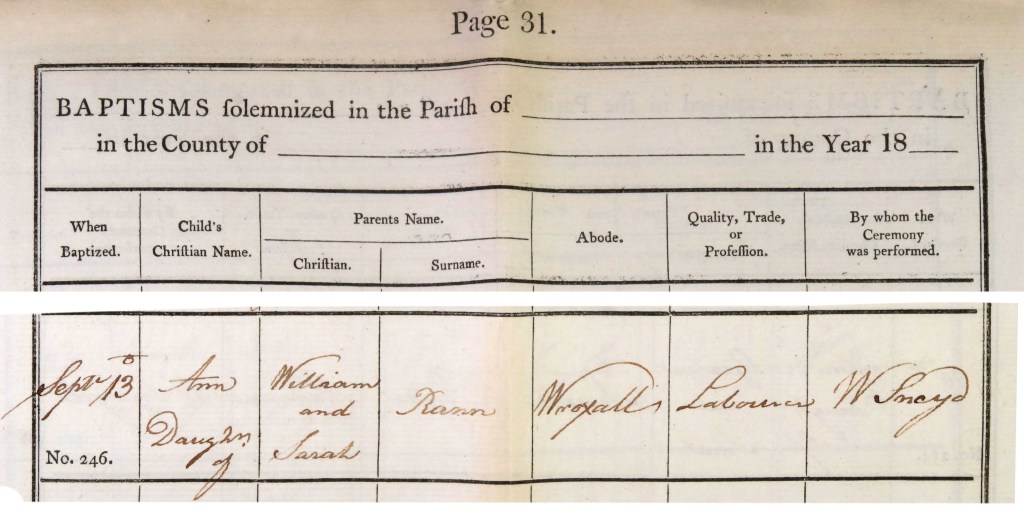 Page 31.
BAPTISMS ſolemnized in the Pariſh of
in the County of in the Year 18
When Baptized.
Child's Chriſtian Name.
Parents Name.
Chriſtian.
Surname.
Abode.
Quality, Trade, or Profeſſion.
By whom the Ceremony was performed.
Septr 13
No. 246.
Ann
Daughr
of
William
and
Sarah
Wroxall
Labourer
W Sneyd